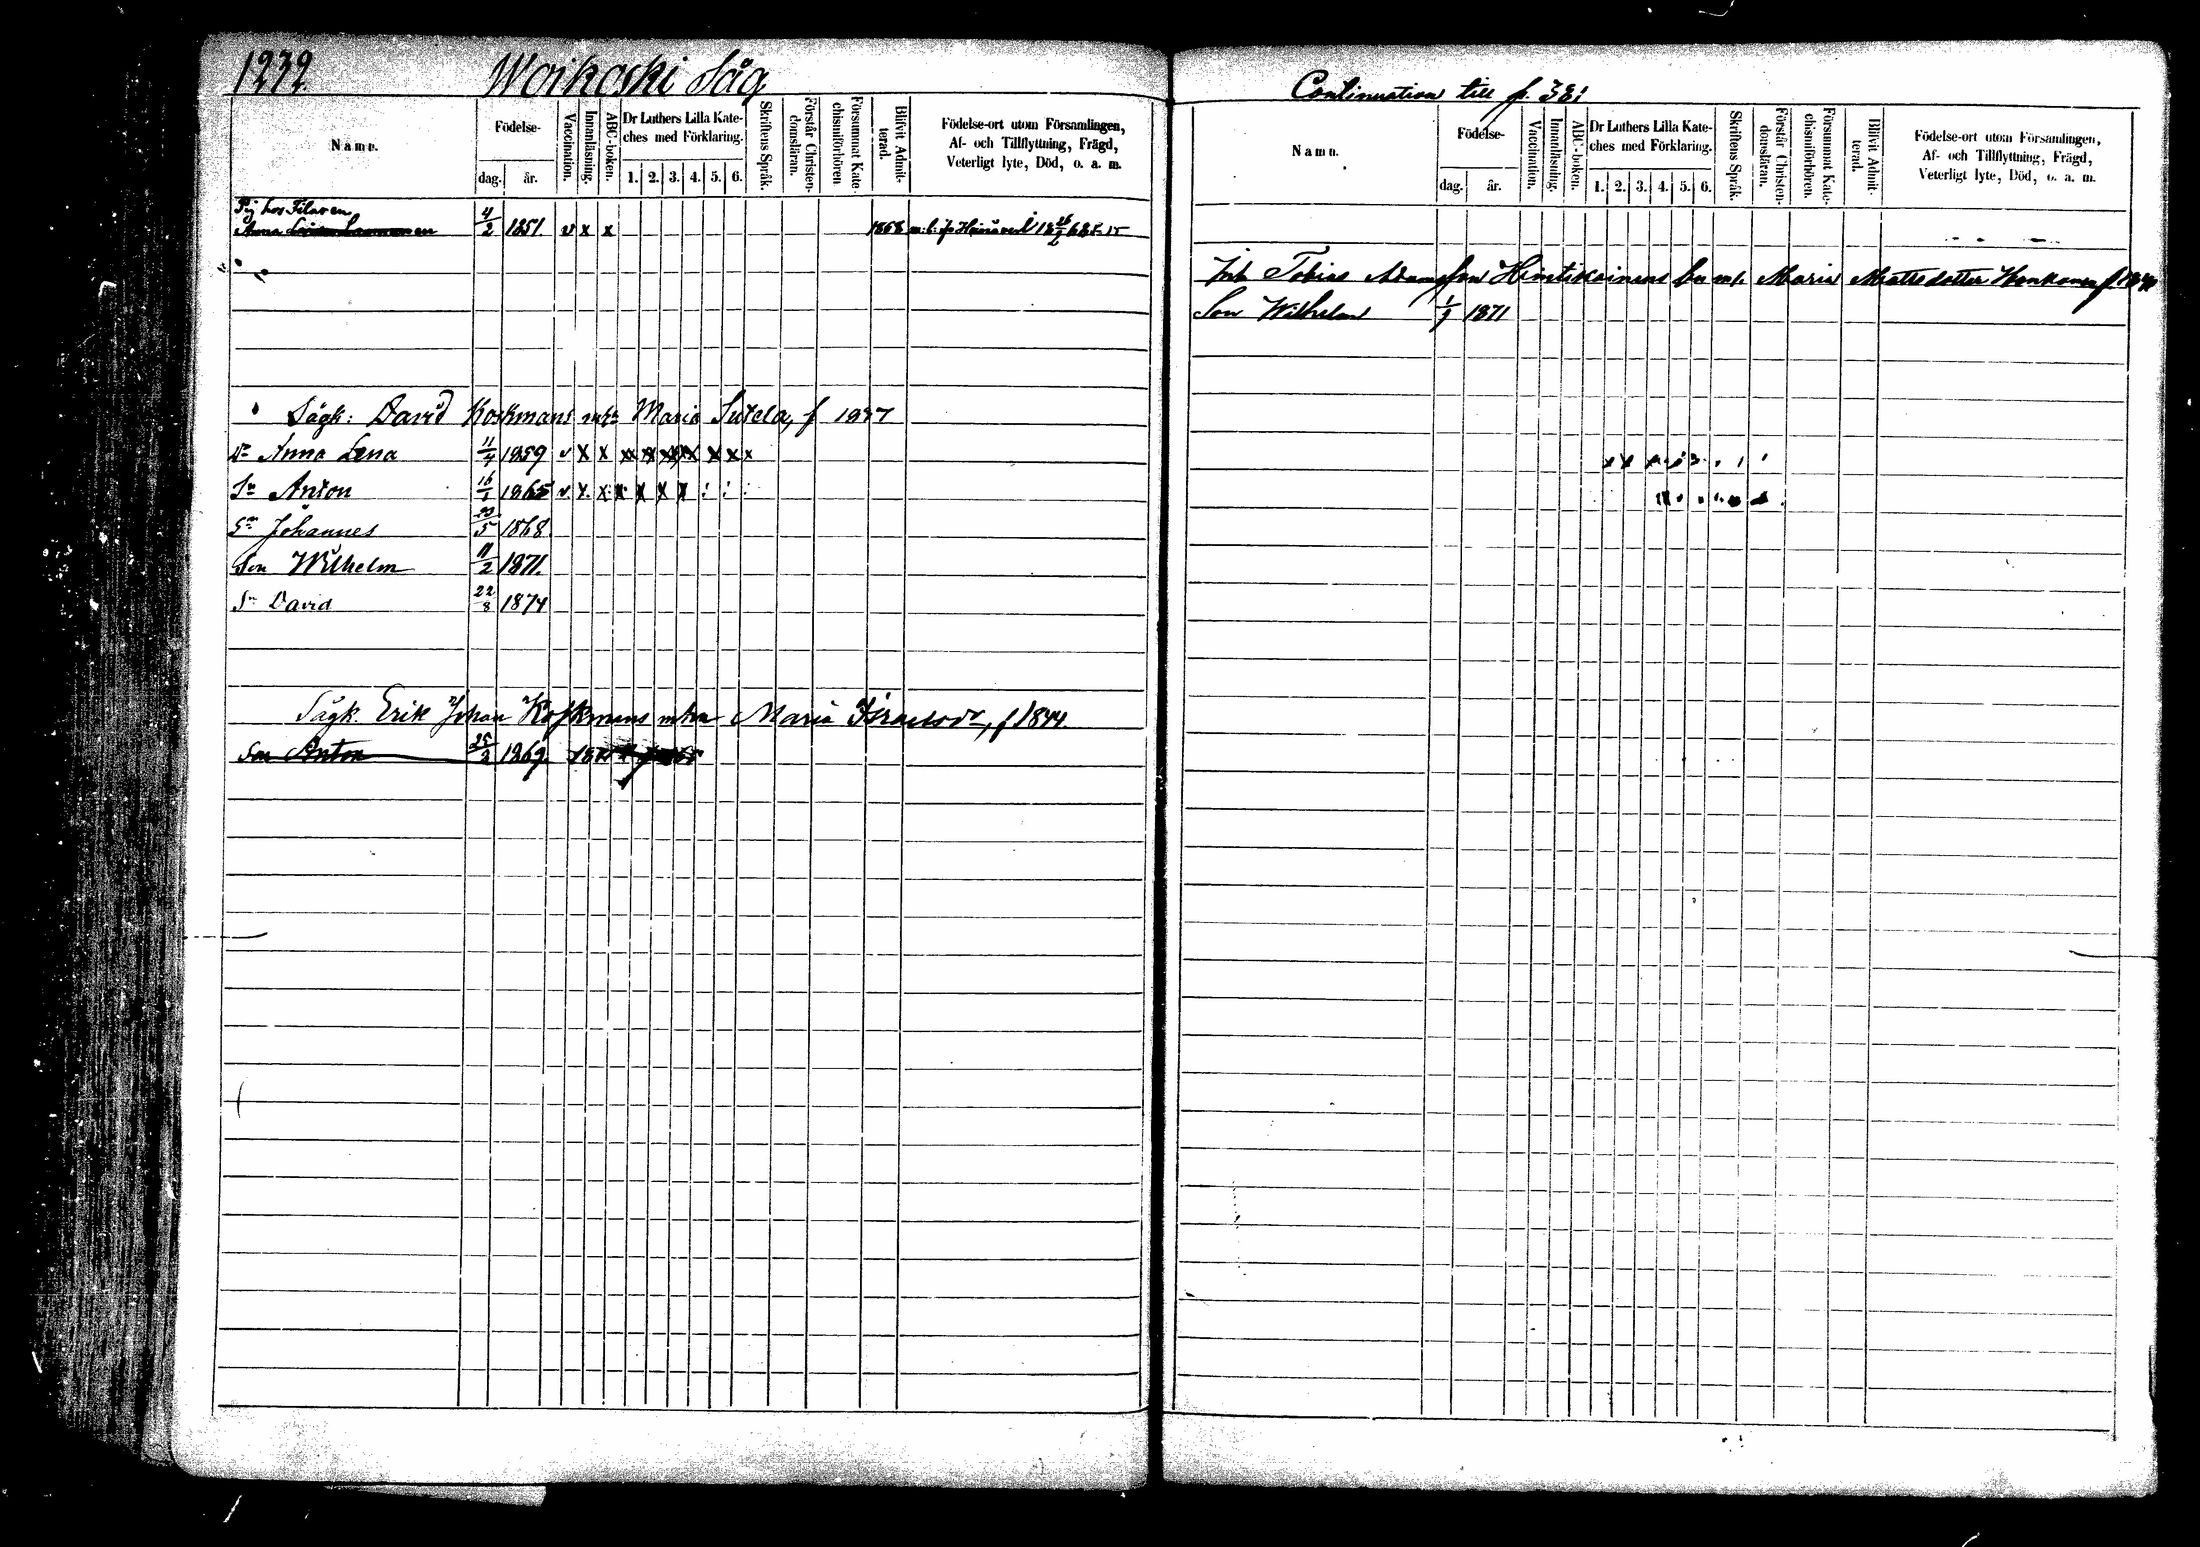 1232.
Woikoski Såg
Namn.
Födelse-
dag.
år.
Vaccination.
Innanläsning.
ABC-boken.
Dr Luthers Lilla Kate-
ches med Förklaring.
1. 2. 3. 4. 5. 6.
Skriftens Språk.
Förstår Christen-
domsläran.
Försummat Kate-
chismiförhören
Blifvit Admit-
terad.
Födelse-ort utom Församlingen,
Af- och Tillflyttning, Frägd,
Veterligt lyte, Död, o. a. m.
Pig hos Filaren
Anna 4/2 1851. v x x 1868
Sågk: David Koskmans Maria Sutela, f 1837
Dr Anna Lena 11/4 1859 v x x xx xx xx xx x x x
Sn Anton 1865 v x x x x x x
Sn Johannes 20/5 1868.
Son Wilhelm 11/2 1871.
Sn David 22/8 1874
Sågk. Erik Johan Koskmans Maria Israelsdr, f 1844.
Son Anton 25/2 1869.
Continuation till p. 381
Namn.
Födelse-
dag.
år.
Vaccination.
Innanläsning.
ABC-boken.
Dr Luthers Lilla Kate-
ches med Förklaring.
1. 2. 3. 4. 5. 6.
Skriftens Språk.
Förstår Christen-
domsläran.
Försummat Kate-
chismiförhören.
Blifvit Admit-
terad.
Födelse-ort utom Församlingen,
Af- och Tillflyttning, Frägd,
Veterligt lyte, Död, o. a. m.
Inh Tobias Adamsson Himtikainens Maria Mattsdotter Honkanen
Son Wilhelm 1/9 1871